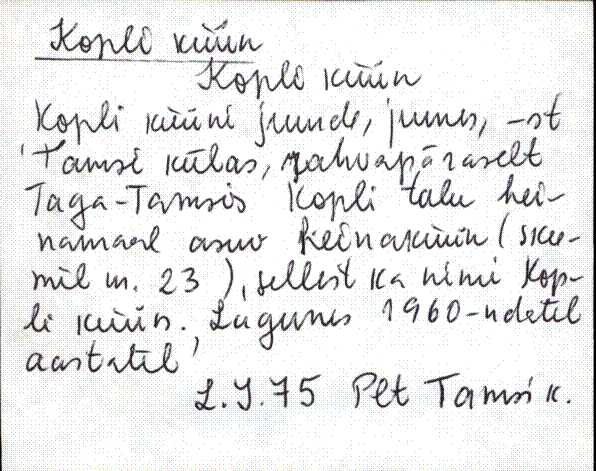 Kopli küün
Kopli küün
Kopli küüni juurde, juures, -st
'Tamsi külas, rahvapäraselt
Taga-Tamsis Kopli talu hei-
namaal asuv heinaküün (skee-
mil nr. 23), sellest ka nimi Kop-
li küün. Lagunes 1960-ndatel
aastatel'
L.J.75 Plt Tamsi k.